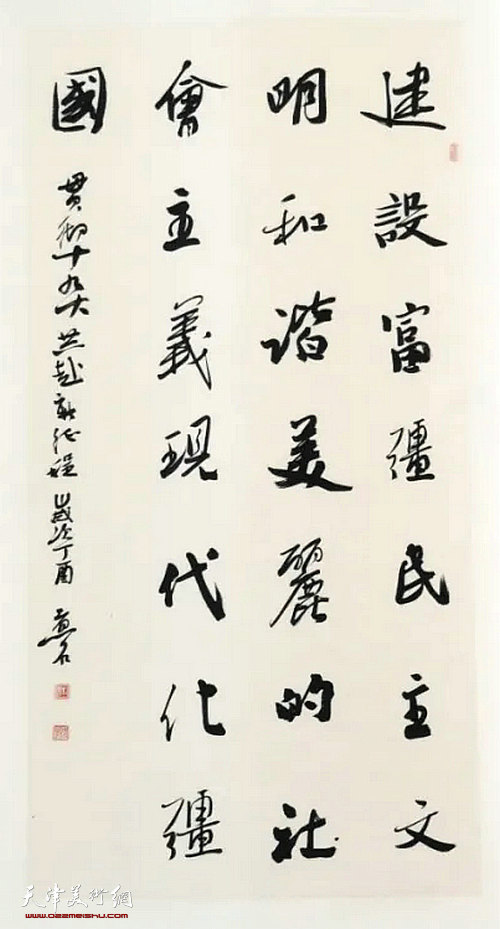 建設富彊民主文
明和谐美麗的社
會主義現代化彊
國
貫彻十九大共赴新征程 歲次丁酉
天津美術網
www.022meishu.com